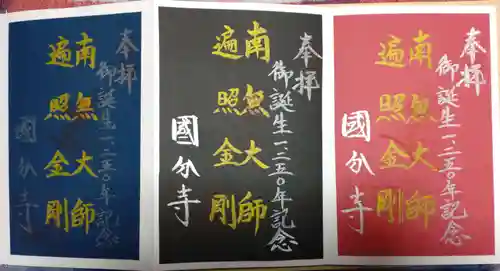 奉拝
御誕生一、二五〇年記念
南無大師
遍照金剛
國分寺
奉拝
御誕生一、二五〇年記念
南無大師
遍照金剛
國分寺
奉拝
御誕生一、二五〇年記念
南無大師
遍照金剛
國分寺